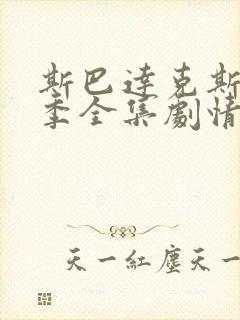 斯巴達克斯
季全集劇情
天一紅塵天一